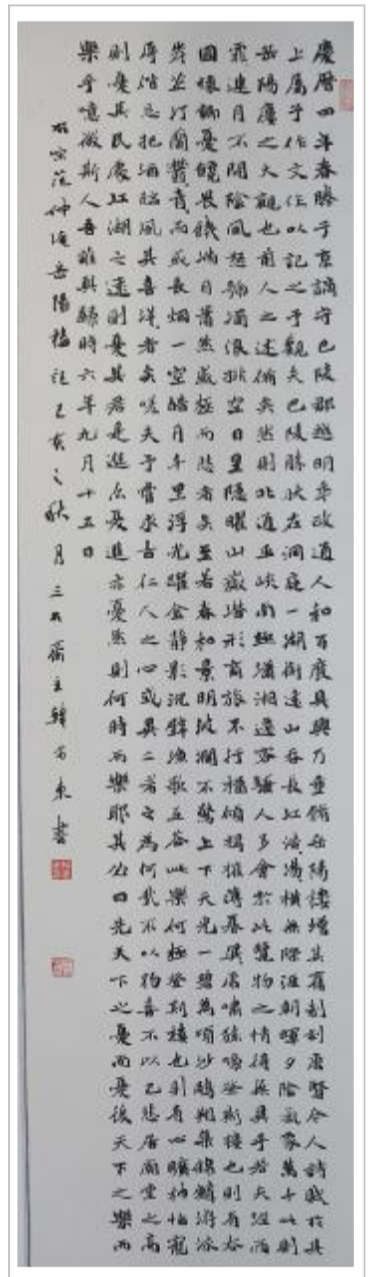 慶曆四年春滕子京謫守巴陵郡越明年政通人和百廢具興乃重脩岳陽樓增其舊制刻唐賢今人詩賦於其
上屬予作文以記之予觀夫巴陵勝狀在洞庭一湖銜遠山吞長江浩湯橫無際涯朝暉夕陰氣象萬千此則
岳陽樓之大觀也前人之述備矣然則北通巫峽南極瀟湘遷客騷人多會於此覽物之情得無異乎若夫淫雨
霏連月不開陰風怒號濁浪排空日星隱曜山嶽潛形商旅不行檣傾楫摧薄暮冥虎嘯猿啼登斯樓也則有去
國懷鄉憂讒畏譏滿目蕭然感極而悲者矣至若春和景明波瀾不驚上下天光一碧萬頃沙鷗翔集錦鱗游泳
岸芷汀蘭鬱青而或長烟一空皓月千里浮光躍金靜影沉璧漁歌互答此樂何極登斯樓也則有心曠神怡寵
辱偕忘把酒臨風其喜洋者矣嗟夫予嘗求古仁人之心或異二者之為何哉不以物喜不以己悲居廟堂之高
則憂其民處江湖之遠則憂其君是進亦憂退亦憂然則何時而樂耶其必曰先天下之憂而憂後天下之樂而
樂乎噫微斯人吾誰與歸時六年九月十五日
范仲淹岳陽樓記己亥之秋月三石齋主韓東書